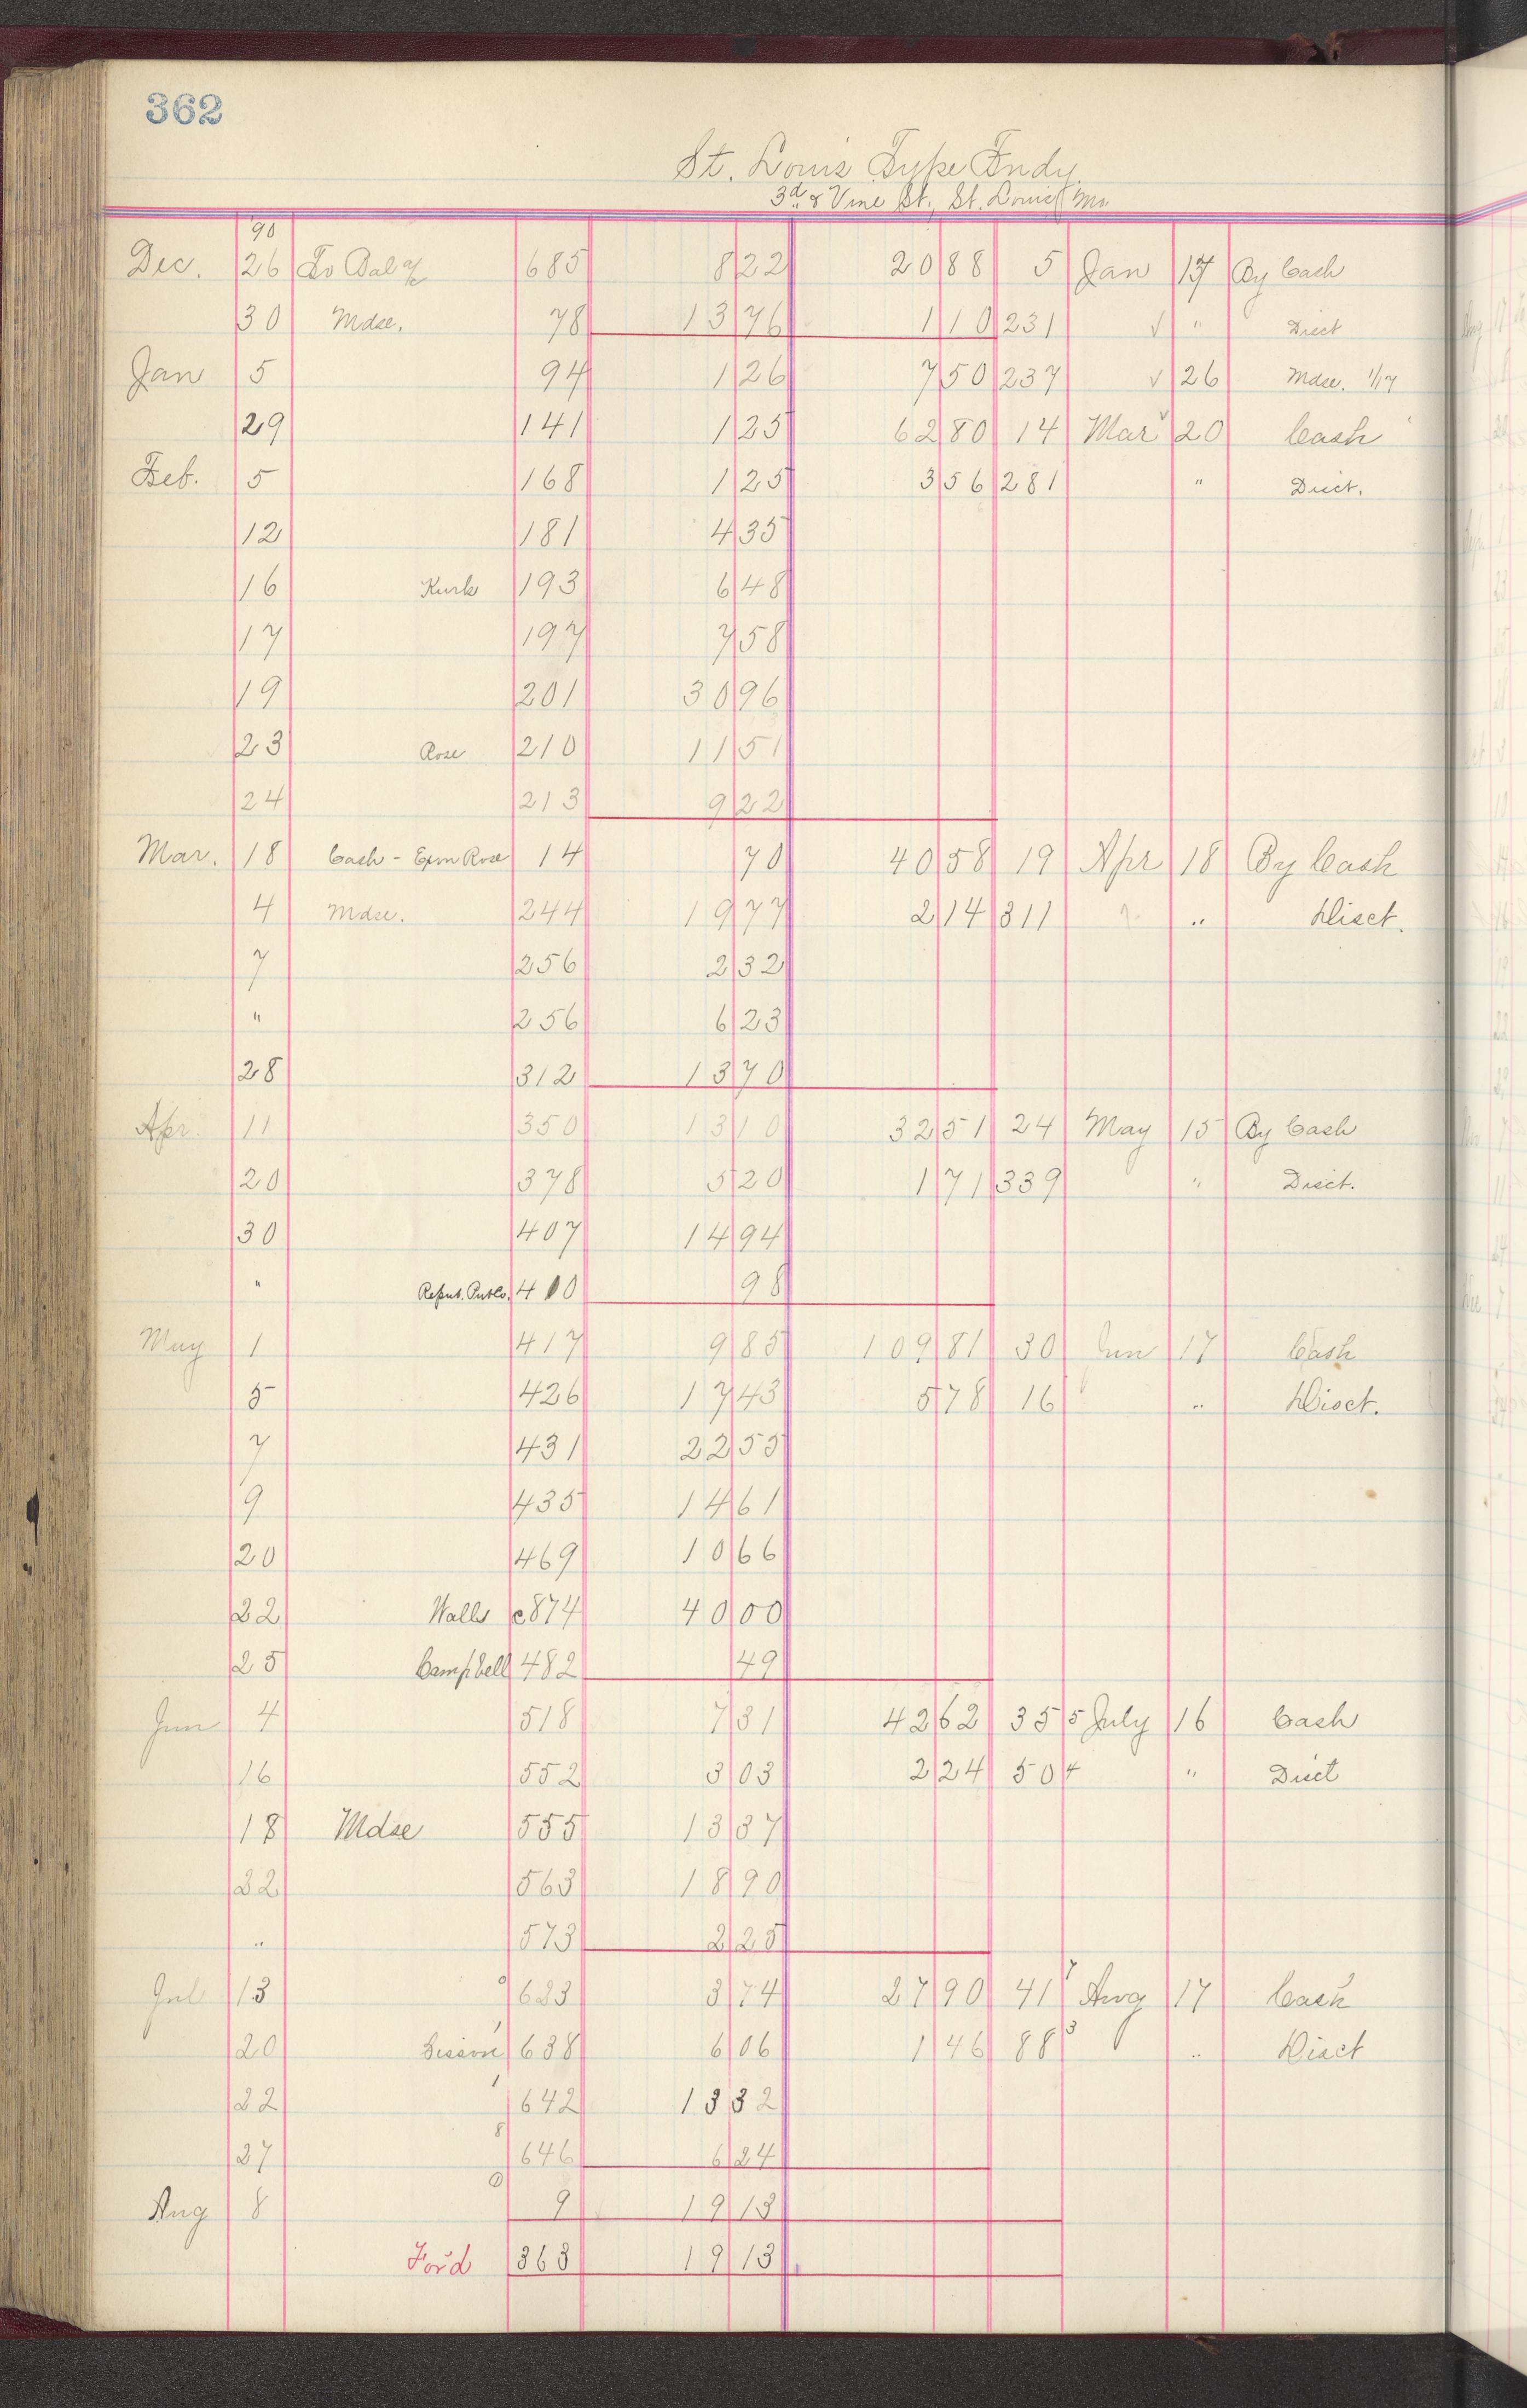 362
St. Louis Type Fndy.
3d & Vine St., St. Louis Mo
'90
Dec. 26 To Bal a/c 685 8 22 20 88 5 Jan 17 By Cash
30 Mdse. 78 13 76 1 10 231 √ " Disct
Jan 5 94 1 26 7 50 237 √ 26 Mdse. 1/17
29 141 1 25 62 80 14 Mar √ 20 Cash
Feb. 5 168 1 25 3 56 281 " Disct.
12 181 4 35
16 Kurk 193 6 48
17 197 7 58
19 201 30 96
23 Rose 210 11 51
24 213 9 22
Mar. 18 Cash - Exm Rose 14 70 40 58 19 Apr 18 By Cash
4 Mdse. 244 19 77 2 14 311 " Disct.
7 256 2 32
" 256 6 23
28 312 13 70
Apr. 11 350 13 10 32 51 24 May 15 By Cash
20 378 5 20 1 71 339 " Disct.
30 407 14 94
" Repub. Publ. 410 98
May 1 417 9 85 109 81 30 Jun 17 Cash
5 426 17 43 5 78 16 " Disct.
7 431 22 55
9 435 14 61
20 469 10 66
22 Walls c874 40 00
25 Campbell 482 49
Jun 4 518 7 31 42 62 35 5 July 16 Cash
16 552 3 03 2 24 50 4 " Disct
18 Mdse 555 13 37
22 563 18 90
" 573 2 25
Jul 13 0 623 3 74 27 90 41 7 Aug 17 Cash
20 1 638 6 06 1 46 88 3 " Disct
22 1 642 13 32
27 8 646 6 24
Aug 8 9 19 13
Ford 363 19 13